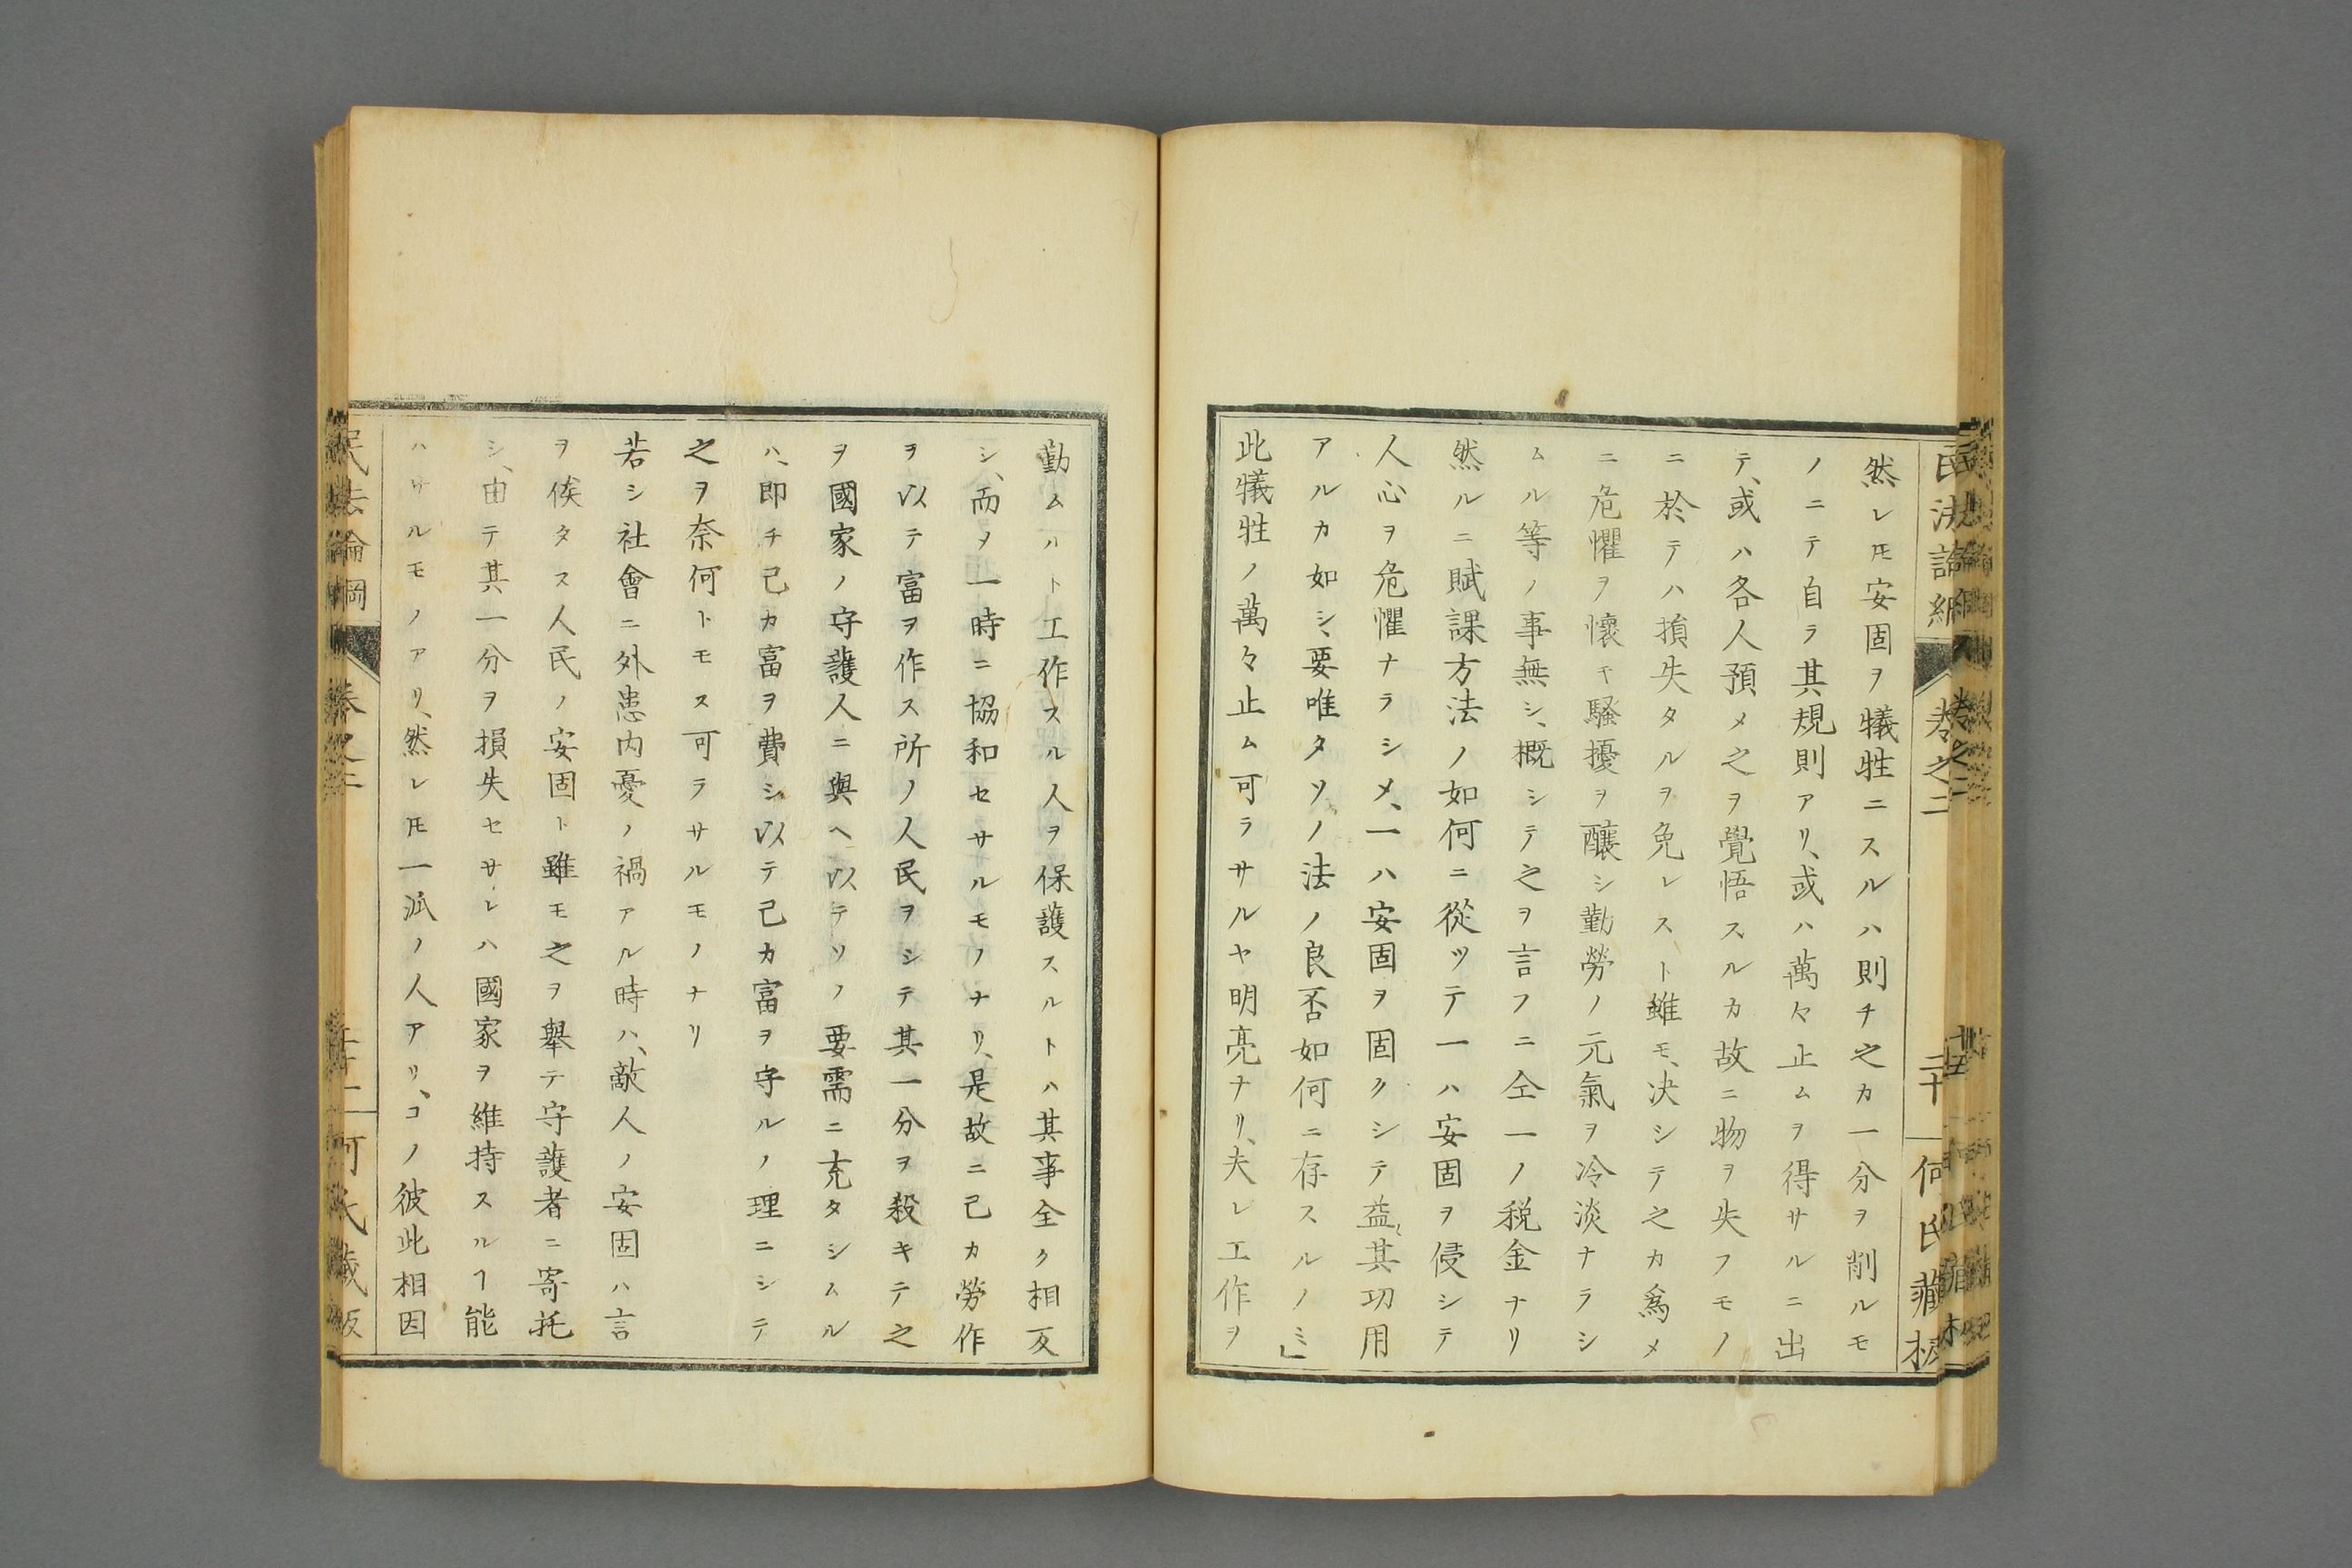 民法論綱 卷之二 二十 何氏藏板
然レ𪜈安固ヲ犠牲ニスルハ則チ之カ一分ヲ削ルモ
ノニテ自ラ其規則アリ、或ハ萬々止ムヲ得サルニ出
テ、或ハ各人預メ之ヲ覺悟スルカ故ニ物ヲ失フモノ
ニ於テハ損失タルヲ免レスト雖モ、决シテ之カ爲メ
ニ危懼ヲ懷キ騷擾ヲ釀シ勤勞ノ元氣ヲ冷淡ナラシ
ムル等ノ事無シ、概シテ之ヲ言フニ仝一ノ税金ナリ
然ルニ賦課方法ノ如何ニ從ツテ一ハ安固ヲ侵シテ
人心ヲ危懼ナラシメ、一ハ安固ヲ固クシテ益〻其功用
アルカ如シ、要唯タソノ法ノ良否如何ニ存スルノミ」
此犠牲ノ萬々止ム可ラサルヤ明亮ナリ、夫レ工作ヲ
勤ムルト工作スル人ヲ保護スルトハ其事全ク相反
シ、而ヲ一時ニ協和セサルモノナリ、是故ニ己カ勞作
ヲ以テ富ヲ作ス所ノ人民ヲシテ其一分ヲ殺キテ之
ヲ國家ノ守護人ニ與ヘ以テソノ要需ニ充タシムル
ハ、即チ己カ富ヲ費シ以テ己カ富ヲ守ルノ理ニシテ
之ヲ奈何トモス可ラサルモノナリ
若シ社會ニ外患内憂ノ禍アル時ハ、敵人ノ安固ハ言
ヲ俟タス人民ノ安固ト雖モ之ヲ擧テ守護者ニ寄托
シ、由テ其一分ヲ損失セサレハ國家ヲ維持スルヿ能
ハサルモノアリ、然レ𪜈一派ノ人アリ、コノ彼此相因
民法論綱 卷之二 何氏藏版